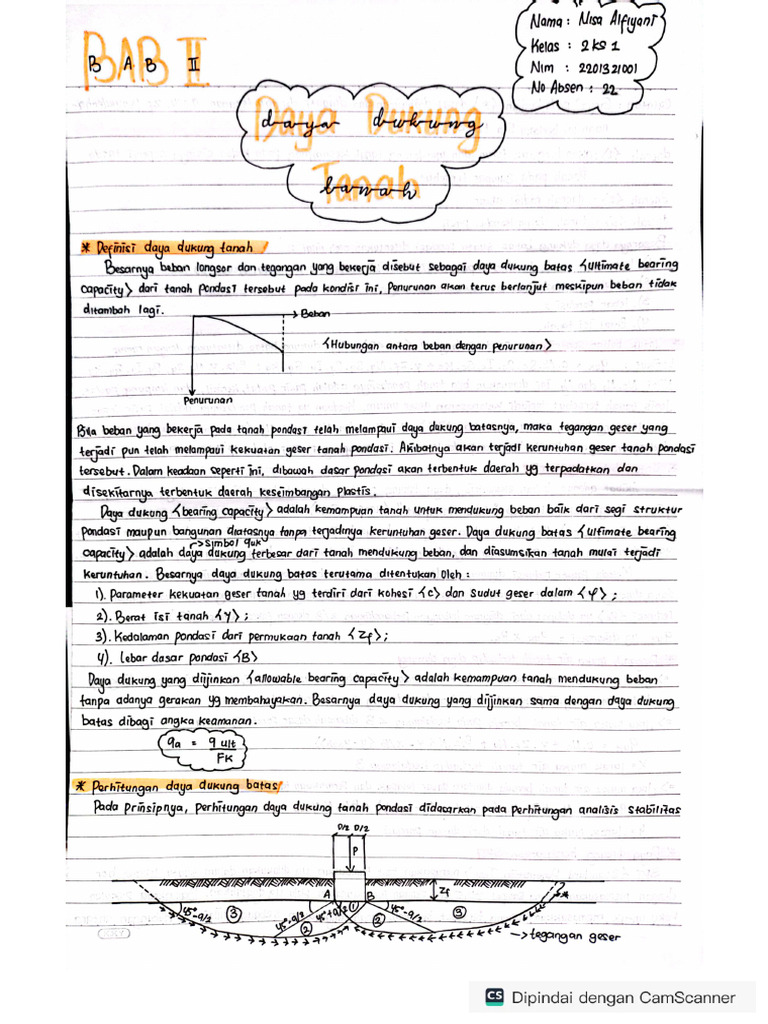 Nama : Nisa Alfiyani
Kelas : 2 KS 1
Nim : 2201321001
No Absen : 22
BAB II
BAB II
Daya Dukung
daya dukung
Tanah
tanah
* Definisi daya dukung tanah
Besarnya beban longsor dan tegangan yang bekerja disebut sebagai daya dukung batas <ultimate bearing
capacity> dari tanah pondasi tersebut pada kondisi ini, Penurunan akan terus berlanjut meskipun beban tidak
ditambah lagi.
Beban
<Hubungan antara beban dengan penurunan>
Penurunan
Bila beban yang bekerja pada tanah pondasi telah melampaui daya dukung batasnya, maka tegangan geser yang
terjadi pun telah melampaui kekuatan geser tanah pondasi. Akibatnya akan terjadi keruntuhan geser tanah pondasi
tersebut. Dalam keadaan seperti ini, dibawah dasar pondasi akan terbentuk daerah yg terpadatkan dan
disekitarnya terbentuk daerah keseimbangan plastis.
Daya dukung <bearing capacity> adalah kemampuan tanah untuk mendukung beban baik dari segi struktur
pondasi maupun bangunan diatasnya tanpa terjadinya keruntuhan geser. Daya dukung batas <ultimate bearing
→simbol quk
capacity> adalah daya dukung terbesar dari tanah mendukung beban, dan diasumsikan tanah mulai terjadi
keruntuhan. Besarnya daya dukung batas terutama ditentukan Oleh :
1). Parameter kekuatan geser tanah yg terdiri dari kohesi <c> dan Sudut geser dalam <φ> ;
2). Berat isi tanah <γ> ;
3). Kedalaman pondasi dari permukaan tanah <Zf> ;
4). Lebar dasar pondasi <B>
Daya dukung yang diijinkan <allowable bearing capacity> adalah kemampuan tanah mendukung beban
tanpa adanya gerakan yg membahayakan. Besarnya daya dukung yang diijinkan sama dengan daya dukung
batas dibagi angka keamanan.
qa = q ult
FK
* Perhitungan daya dukung batas
Pada Prinsipnya, perhitungan daya dukung tanah pondasi didasarkan pada perhitungan analisis stabilitas
D/2 D/2
P
A B Zf
45°-φ/2 3 45°-φ/2 2 45°+φ/2 1 2 45°-φ/2 3
→tegangan geser
CS Dipindai dengan CamScanner